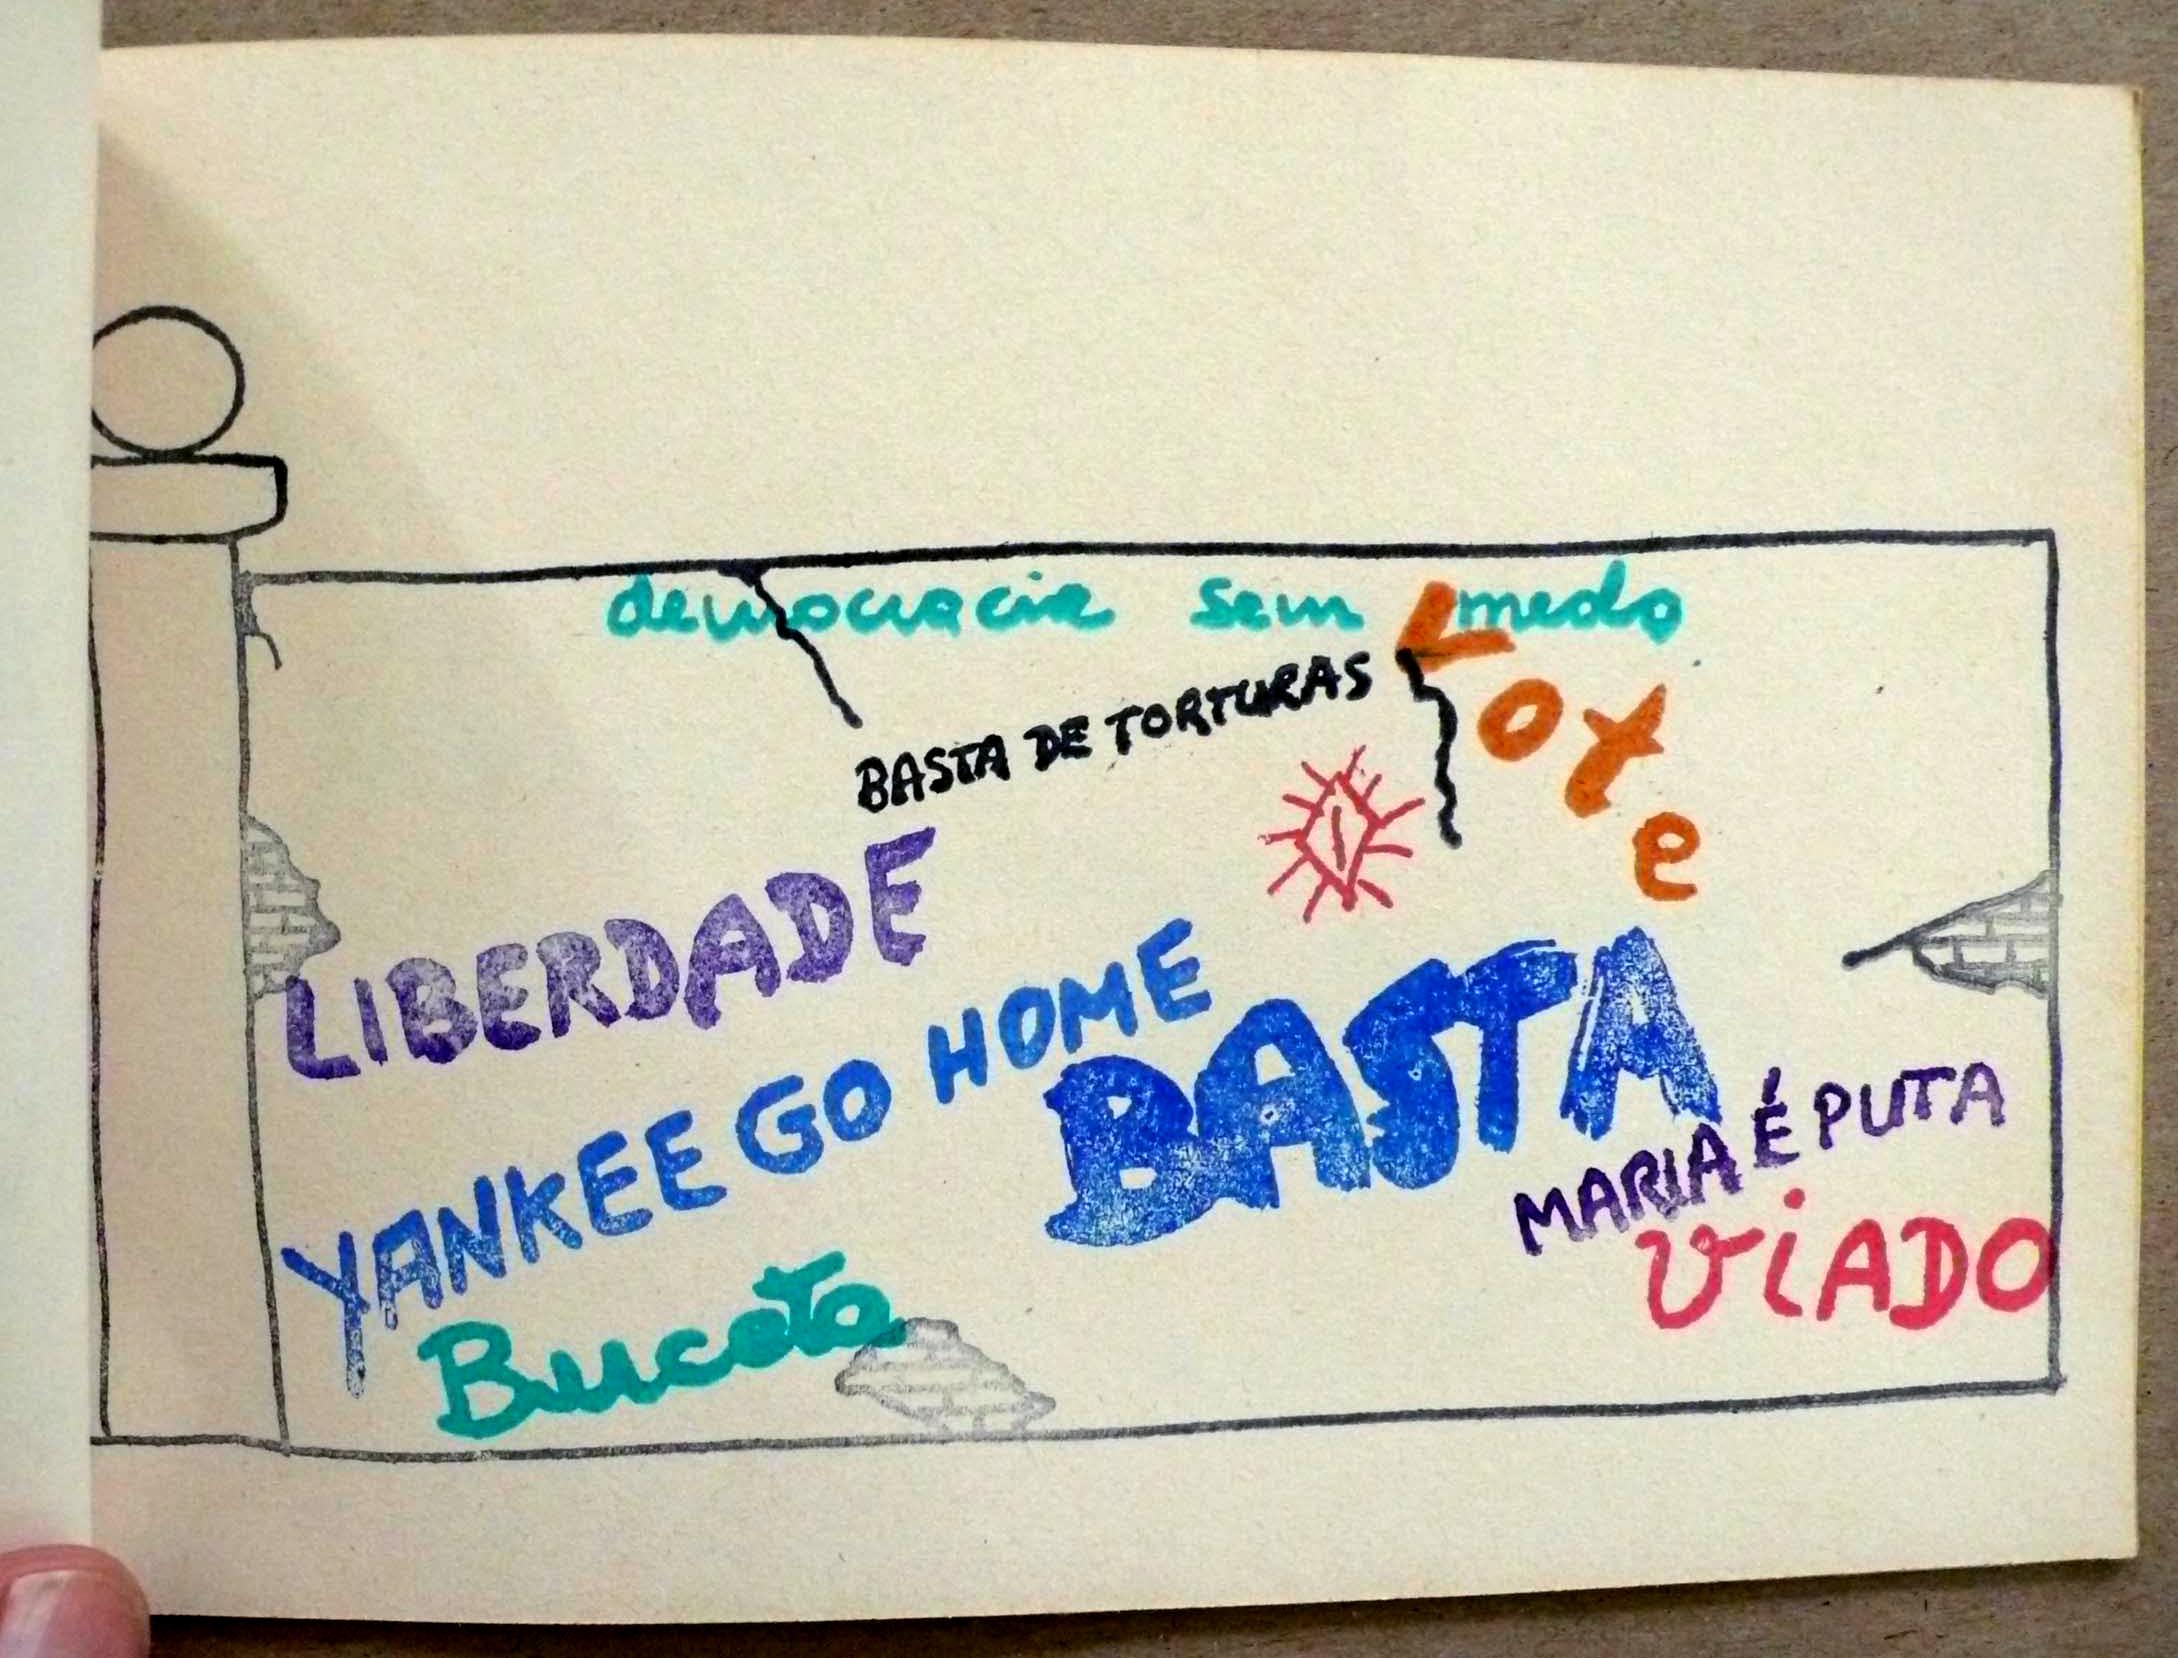 democracia sem medo
BASTA DE TORTURAS
Love
LIBERDADE
YANKEE GO HOME
BASTA
MARIA É PUTA
viADO
Buceta